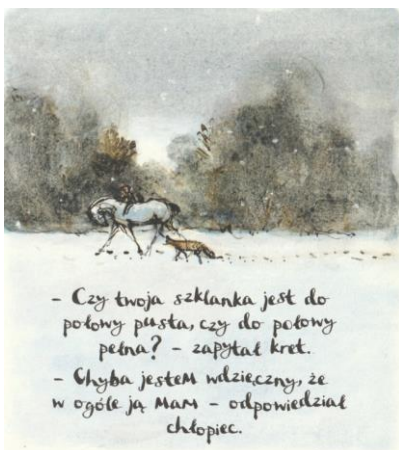 – Czy twoja szklanka jest do
połowy pusta, czy do połowy
pełna? – zapytał kret.
– Chyba jestem wdzięczny, że
w ogóle ją mam – odpowiedział
chłopiec.